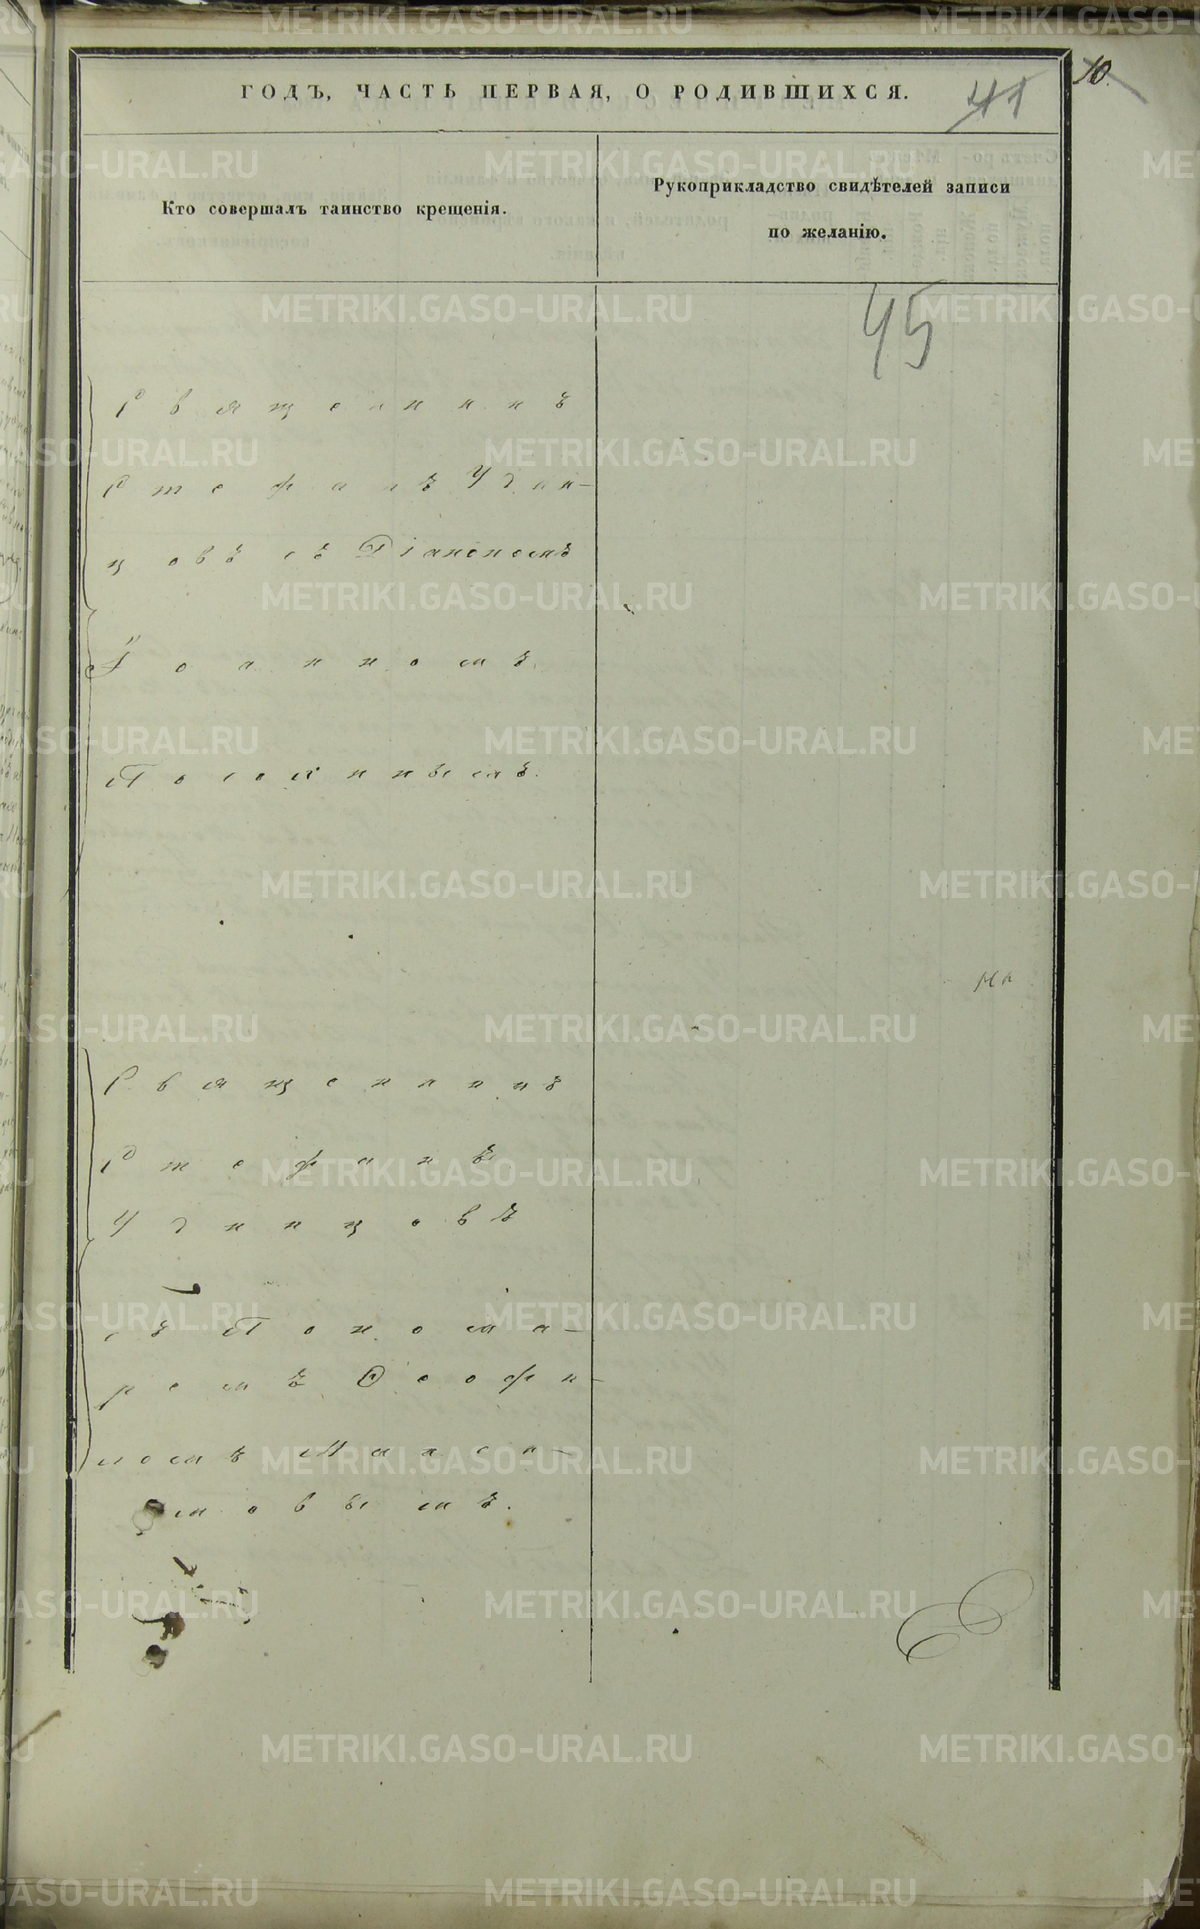 ГОДЪ, ЧАСТЬ ПЕРВАЯ, О РОДИВШИХСЯ.
41
10.
Кто совершалъ таинство крещенія.
Рукоприкладство свидѣтелей записи
по желанію.
45
Священникъ
Стефанъ Удин-
цовъ съ Діакономъ
Іоанномъ
Священникъ
Стефанъ
Удинцовъ
съ Понома-
ремъ Ѳеофи-
ломъ Макси-
мовымъ.
METRIKI.GASO-URAL.RU